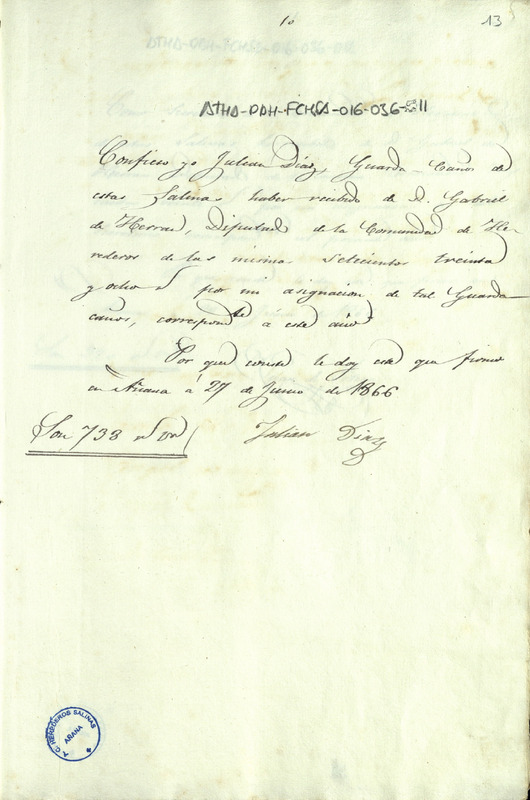 10
13
ATHA-DAH-FCHSA-016-036-011
Confieso yo Julian Diaz, Guarda-Caños de
estas Salinas haber recibido de D. Gabriel
de Herran, Diputado de la Comunidad de He-
rederos de las mismas setecientos treinta
y ocho rs por mi asignacion de tal Guarda
caños, correspondte á este año
Por que conste le doy este que firmo
en Añana á 27 de Junio de 1866
Son 738 rs vn
Julian Diaz
HEREDEROS SALINAS
AÑANA